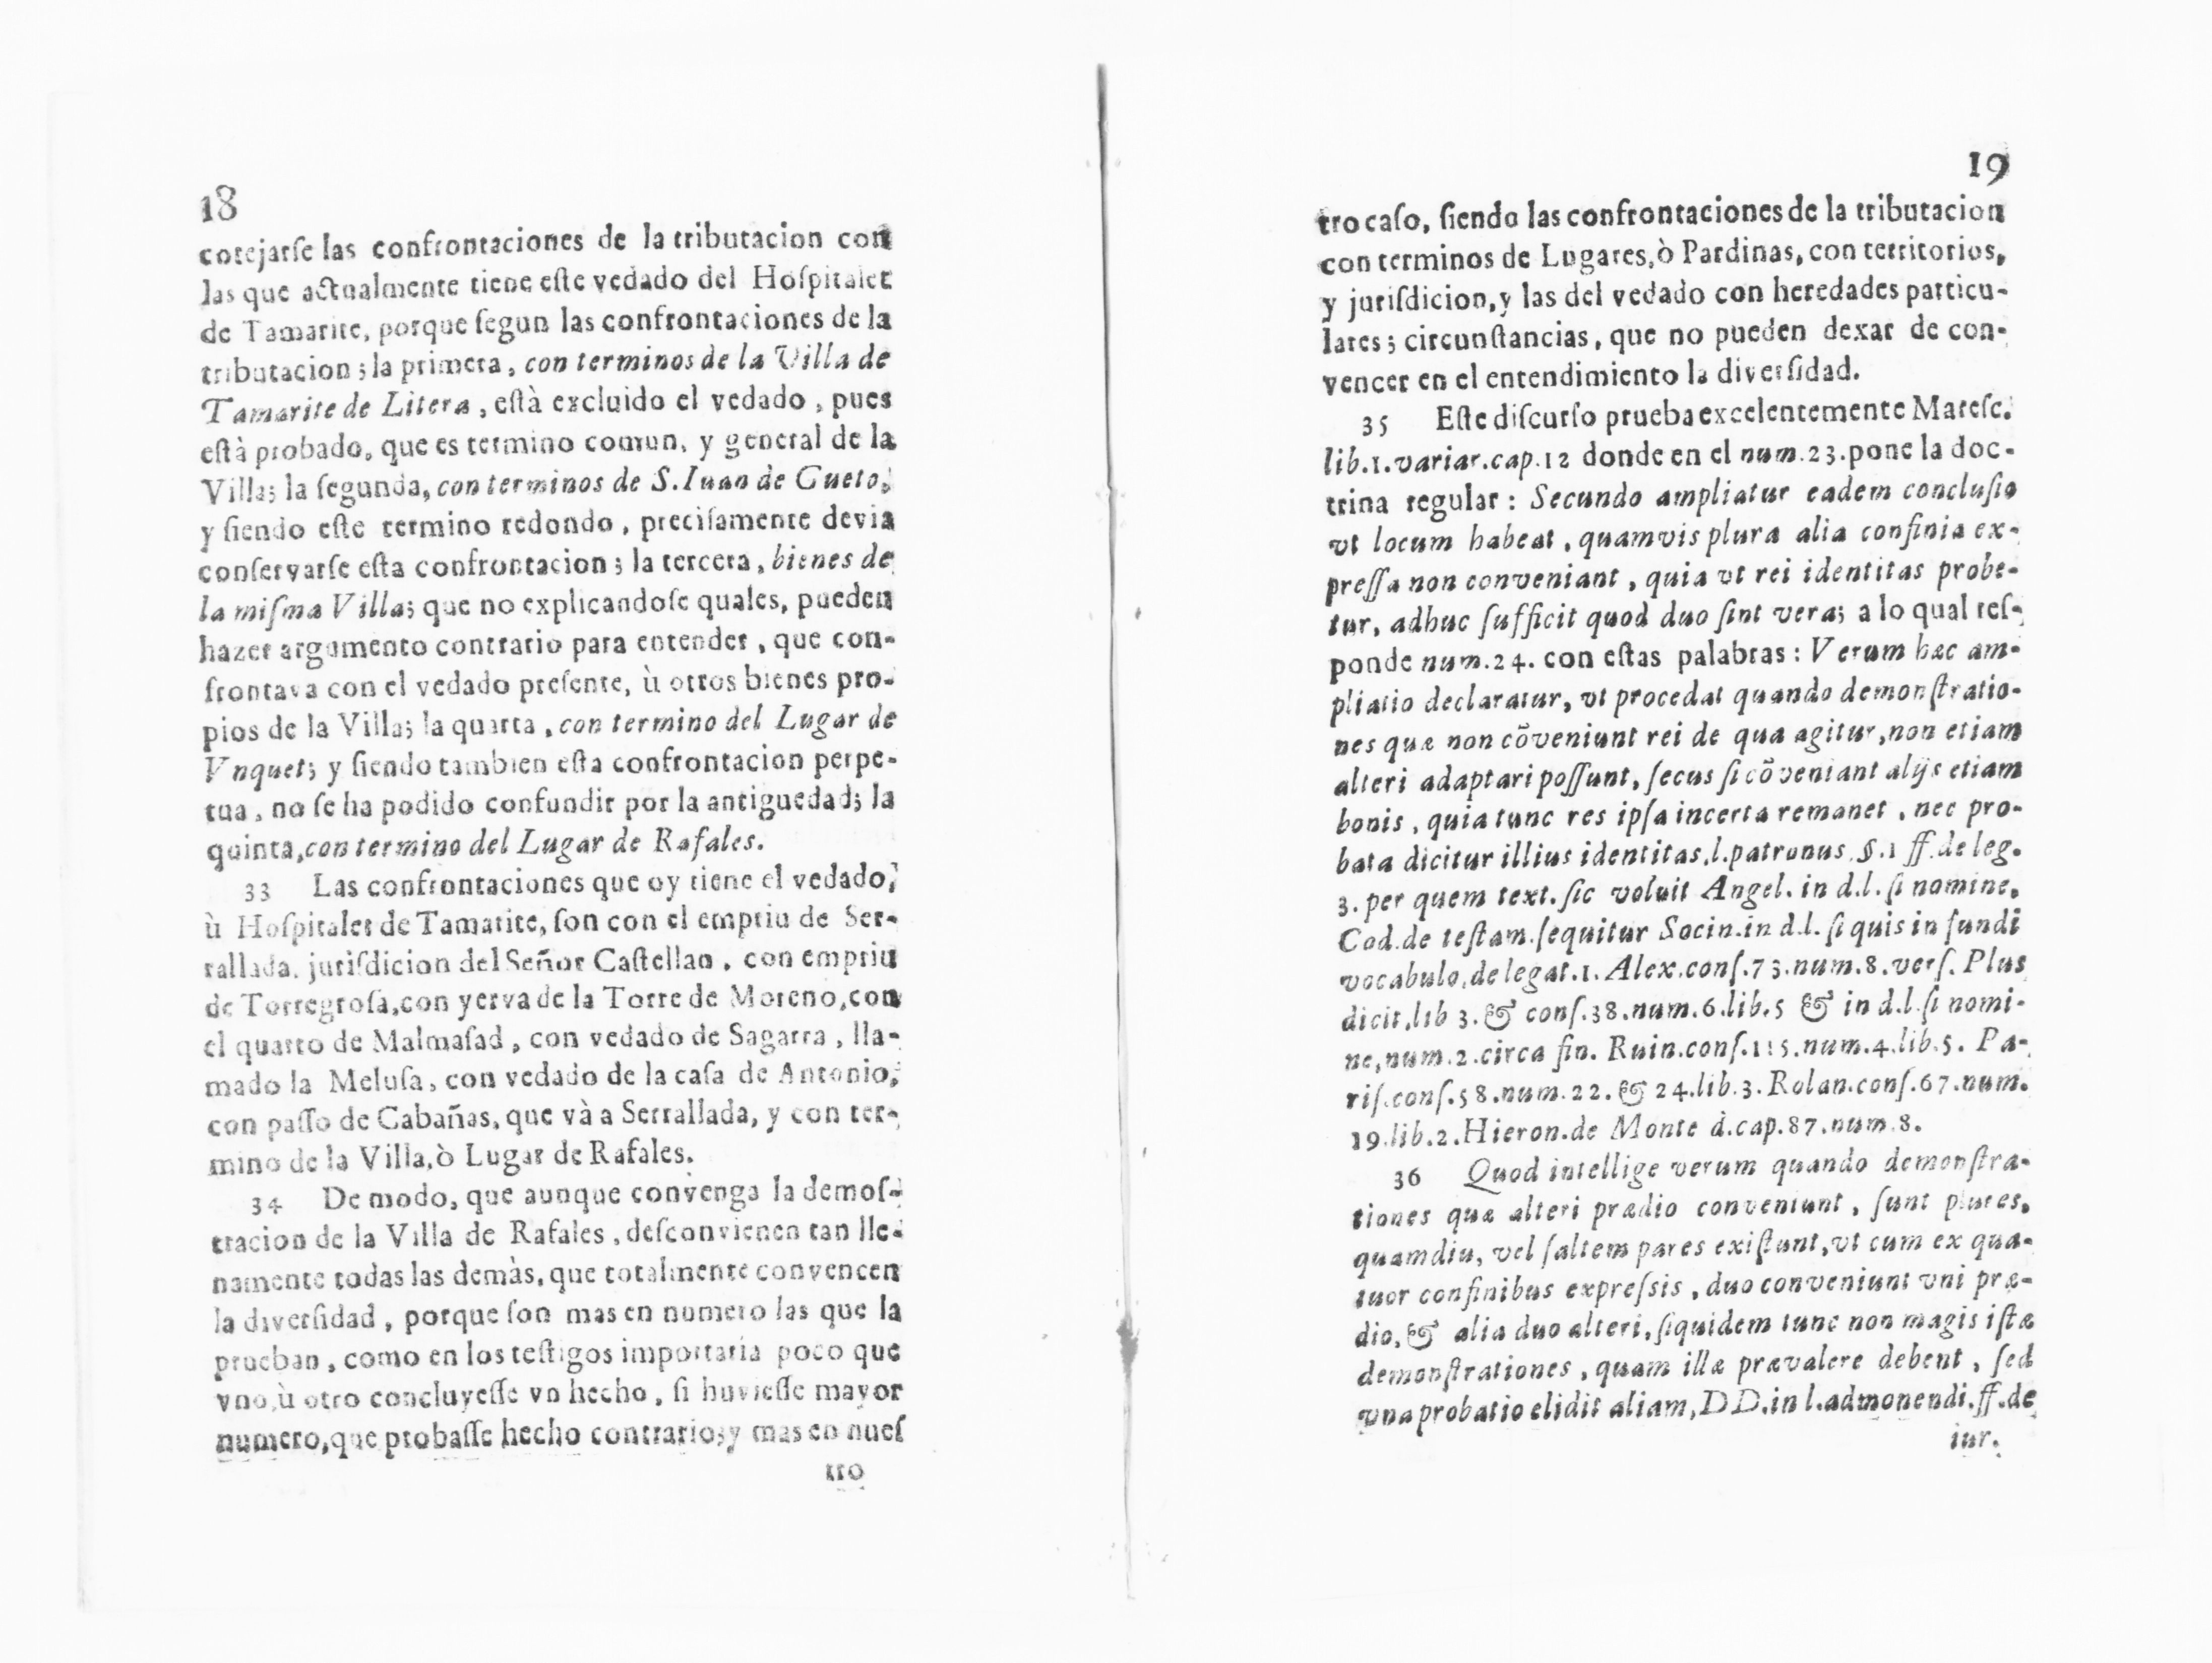 18
cotejarſe las confrontaciones de la tributacion con
las que actualmente tiene eſte vedado del Hoſpitalet
de Tamarite, porque ſegun las confrontaciones de la
tributacion; la primera, con terminos de la Villa de
Tamarite de Litera, eſtà excluido el vedado, pues
eſtà probado, que es termino comun, y general de la
Villa; la ſegunda, con terminos de S. Iuan de Cueto;
y ſiendo eſte termino redondo, preciſamente devia
conſervarſe eſta confrontacion; la tercera, bienes de
la miſma Villa; que no explicandoſe quales, pueden
hazer argumento contrario para entender, que con-
frontava con el vedado preſente, ù otros bienes pro-
pios de la Villa; la quarta, con termino del Lugar de
Vnquet; y ſiendo tambien eſta confrontacion perpe-
tua, no ſe ha podido confundir por la antiguedad; la
quinta, con termino del Lugar de Rafales.
33 Las confrontaciones que oy tiene el vedado,
ù Hoſpitalet de Tamarite, ſon con el empriu de Ser-
rallada, juriſdicion del Señor Caſtellan, con empriu
de Torregroſa, con yerva de la Torre de Moreno, con
el quarto de Malmaſad, con vedado de Sagarra, lla-
mado la Meluſa, con vedado de la caſa de Antonio,
con paſſo de Cabañas, que và a Serrallada, y con ter-
mino de la Villa, ò Lugar de Rafales.
34 De modo, que aunque convenga la demoſ-
tracion de la Villa de Rafales, deſconvienen tan lle-
namente todas las demàs, que totalmente convencen
la diverſidad, porque ſon mas en numero las que la
prueban, como en los teſtigos importaria poco que
vno, ù otro concluyeſſe vn hecho, ſi huvieſſe mayor
numero, que probaſſe hecho contrario; y mas en nueſ
tro
19
tro caſo, ſiendo las confrontaciones de la tributacion
con terminos de Lugares, ò Pardinas, con territorios,
y juriſdicion, y las del vedado con heredades particu-
lares; circunſtancias, que no pueden dexar de con-
vencer en el entendimiento la diverſidad.
35 Eſte diſcurſo prueba excelentemente Mareſc.
lib.1. variar. cap.12 donde en el num.23. pone la doc-
trina regular: Secundo ampliatur eadem concluſio
vt locum habeat, quamvis plura alia confinia ex-
preſſa non conveniant, quia vt rei identitas probe-
tur, adhuc ſufficit quod duo ſint vera; a lo qual reſ-
ponde num.24. con eſtas palabras: Verum hæc am-
pliatio declaratur, vt procedat quando demonſtratio-
nes quæ non cõveniunt rei de qua agitur, non etiam
alteri adaptari poſſunt, ſecus ſi cõveniant alijs etiam
bonis, quia tunc res ipſa incerta remanet, nec pro-
bata dicitur illius identitas, l. patronus, §.1 ff. de leg.
3. per quem text. ſic voluit Angel. in d.l. ſi nomine,
Cod. de teſtam. ſequitur Socin. in d.l. ſi quis in fundi
vocabulo, de legat.1. Alex. conſ.73. num.8. verſ. Plus
dicit, lib 3. & conſ.38. num.6. lib.5 & in d.l. ſi nomi-
ne, num.2. circa fin. Ruin. conſ.115. num.4. lib.5. Pa-
riſ. conſ.58. num.22. & 24. lib.3. Rolan. conſ.67. num.
19. lib.2. Hieron. de Monte d. cap.87. num.8.
36 Quod intellige verum quando demonſtra-
tiones quæ alteri prædio conveniunt, ſunt plures,
quamdiu, vel ſaltem pares exiſtunt, vt cum ex qua-
tuor confinibus expreſsis, duo conveniunt vni præ-
dio, & alia duo alteri, ſiquidem tunc non magis iſtæ
demonſtrationes, quam illæ prævalere debent, ſed
vna probatio elidit aliam, DD. in l. admonendi. ff. de
iur.